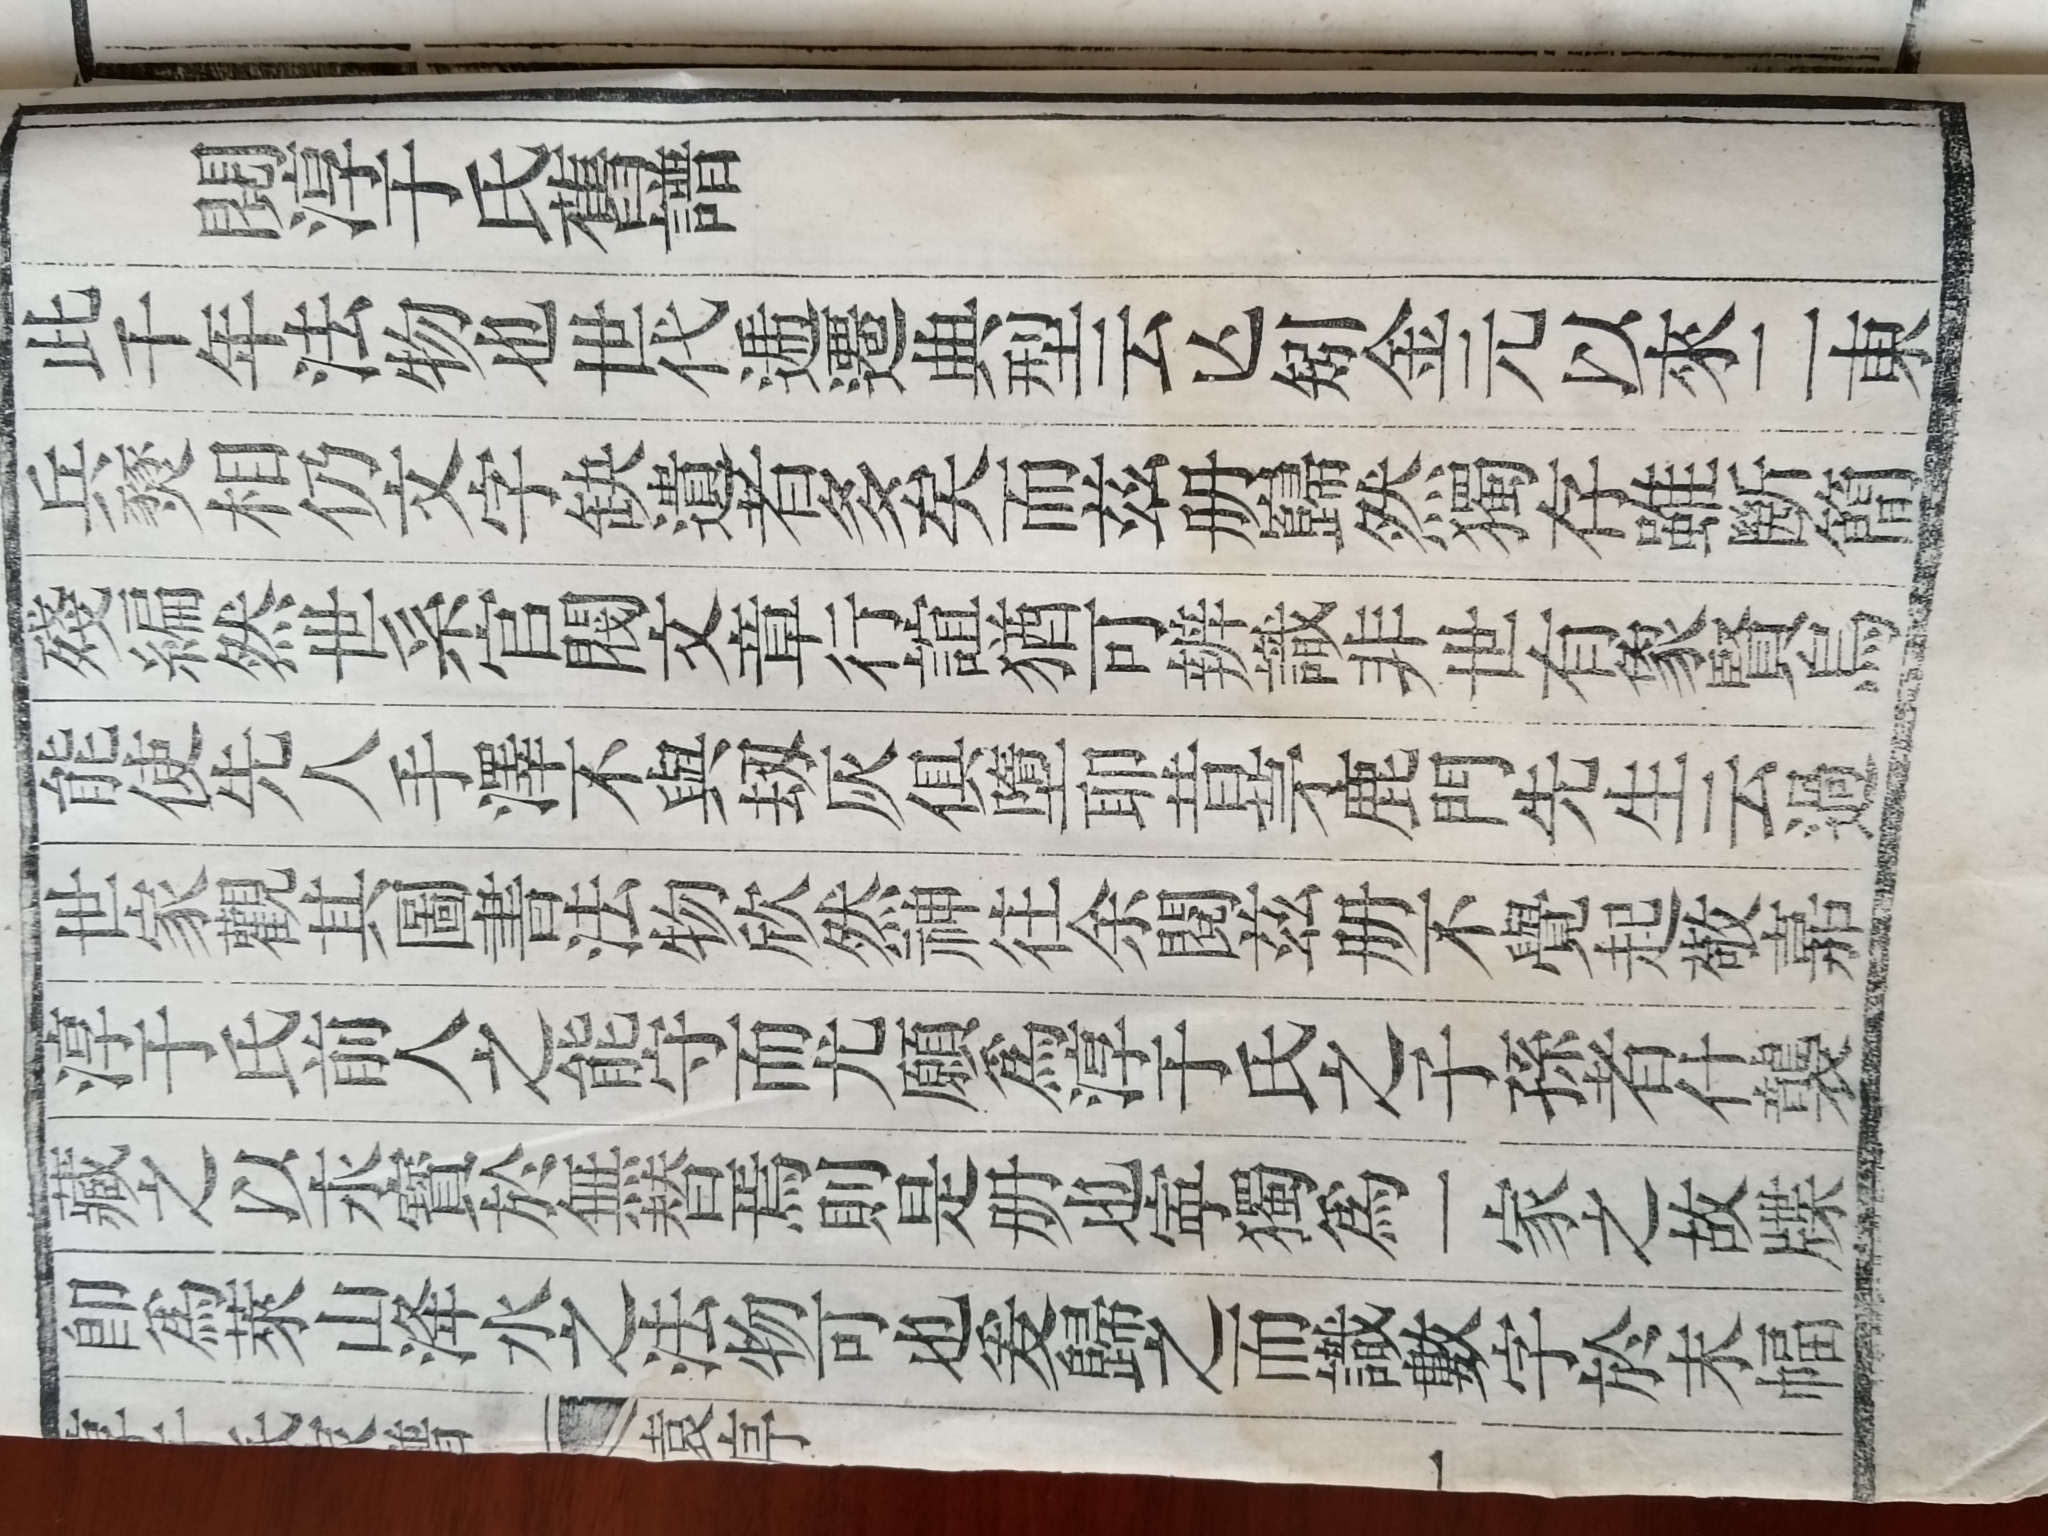 閱淳于氏舊譜
此千年法物也世代遞遷典型云亾矧金元以來一東
兵燹相仍文字缺遺者多矣而茲册巋然獨存雖斷簡
殘編然世系官閥文章行誼猶可辨識非世有家寶烏
能使先人手澤不與刼灰俱墮耶昔晷鹿門先生云過
世家觀其圖書法物欣然神往余閱茲册不覺起敬嘉
淳于氏前人之能守而尤願為淳于氏之子孫者什襲
藏之以永寶於無替焉則是册也寧獨為一家之故牒
即為萊山洚水之法物可也爰歸之而識數字於末幅
淳于氏家譜
袁亭
一